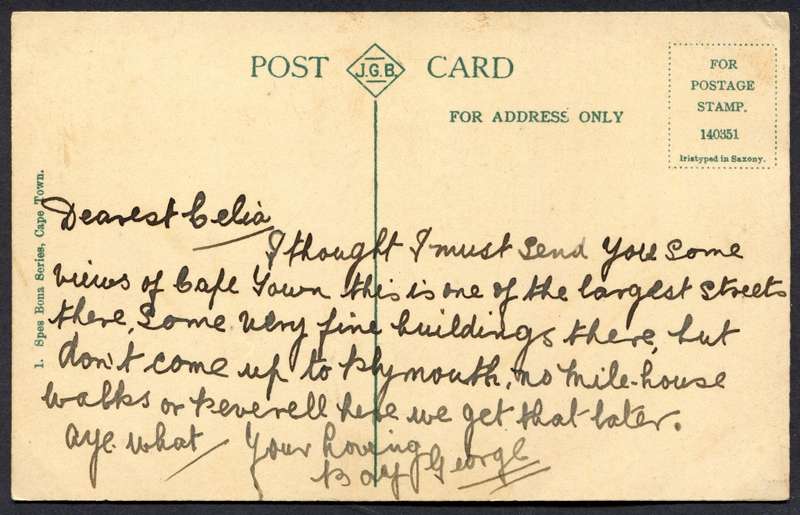 POST J.G.B. CARD
FOR ADDRESS ONLY
FOR
POSTAGE
STAMP.
140351
Iristyped in Saxony.
1. Spes Bona Series, Cape Town.
Dearest Celia
I thought I must send you some
views of Cape Town, this is one of the largest streets
there, some very fine buildings there, but
don't come up to Plymouth, no Mile-house
walks or Peverell here we get that later.
aye what / Your Loving
Boy George